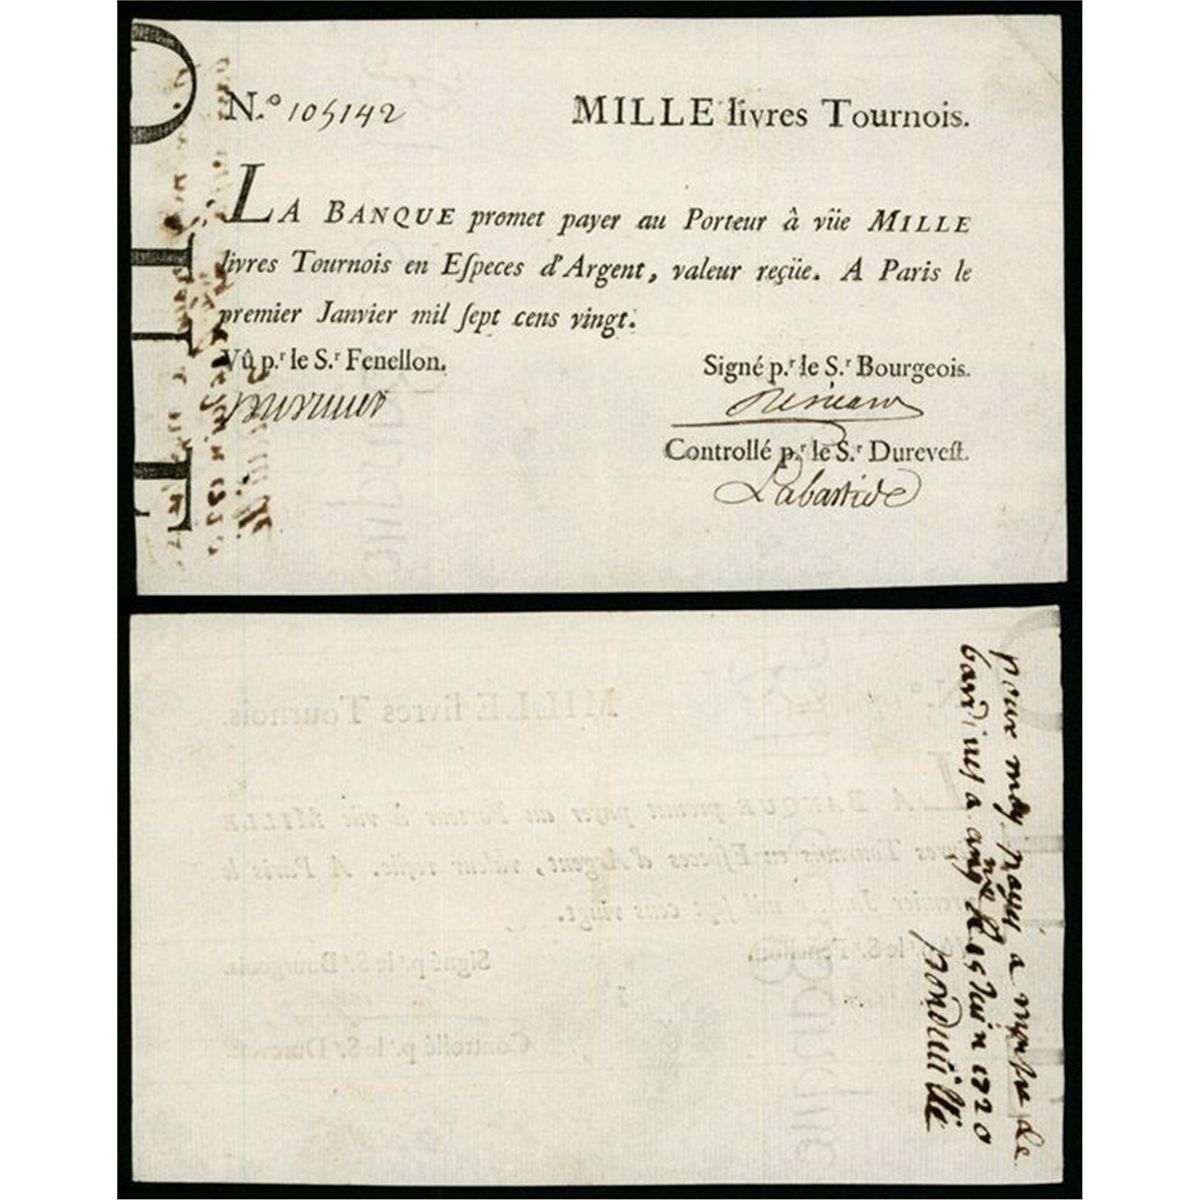 N.º 105142
MILLE livres Tournois.
LA BANQUE promet payer au Porteur à vüe MILLE
livres Tournois en Eſpeces d'Argent, valeur reçüe. A Paris le
premier Janvier mil ſept cens vingt.
Vû p.r le S.r Fenellon.
Signé p.r le S.r Bourgeois.
Controllé p.r le S.r Dureveſt.
Labastide
pour moy payés a
a
15 Juin 1720